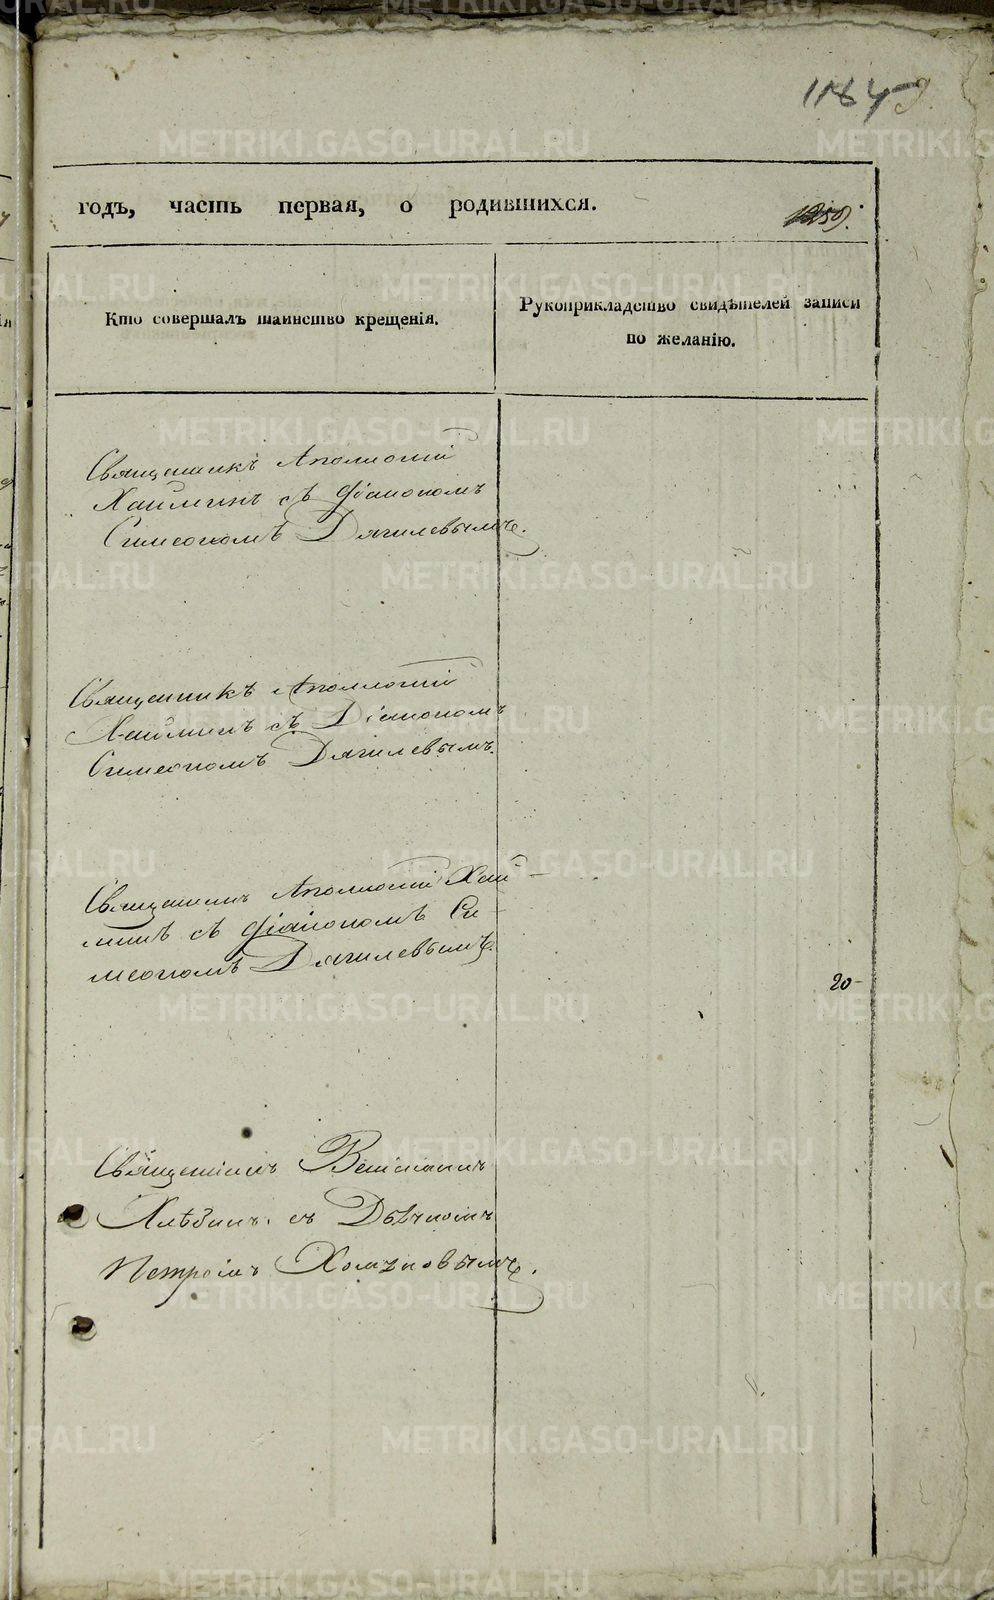 METRIKI.GASO-URAL.RU
годъ, часть первая, о родившихся.
1259.
Кто совершалъ таинство крещенія.
Рукоприкладство свидѣтелей записи
по желанію.
Священникъ Аполлоній
Хаймин съ Діакономъ
Симеономъ Дягилевымъ.
Священникъ Аполлоній
Хайминъ съ Діакономъ
Симеономъ Дягилевымъ.
Священникъ Аполлоній Хай-
минъ съ Діакономъ Си-
меономъ Дягилевымъ.
20-
Священникъ Веніаминъ
Хлѣбинъ съ Дьячкомъ
Петромъ Хомяковымъ.